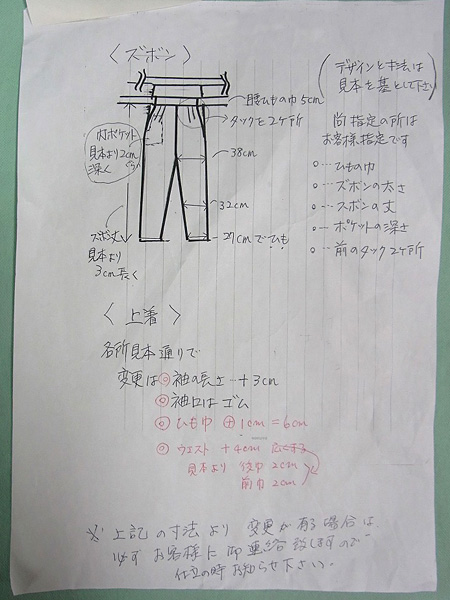 〈ズボン〉
デザインと寸法は
見本を基として下さい
腰ひもの巾 5cm
タックを2ケ所
尚指定の所は
お客様指定です
内ポケット
見本より2cm
深く
38cm
○…ひもの巾
○…ズボンの太さ
○…ズボンの丈
○…ポケットの深さ
○…前のタック2ケ所
32cm
27cmでひも
ズボン丈
見本より
3cm長く
〈上着〉
各所見本通りで
変更は◎袖の長さ…+3cm
◎袖口はゴム
◎ひも巾 ⊕1cm=6cm
◎ウェスト +4cm 広くする
見本より 後巾 2cm
前巾 2cm
※上記の寸法より 変更が有る場合は、
必ずお客様に御連絡致しますので
仕立の時お知らせ下さい。